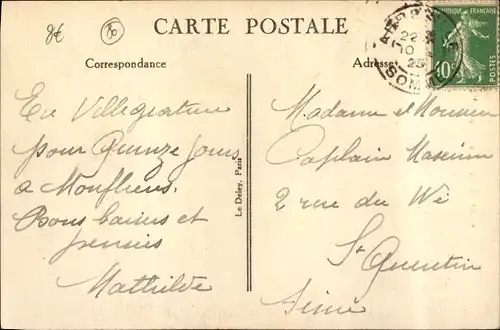 8€
80
CARTE POSTALE
Correspondance
Adresse
22
10
25
SOMME
FRANÇAISE
POSTES
10
En Villégiature
pour Quinze jours
a Monflières.
Bons baisers et
pensées
Mathilde
Le Deley, Paris
Madame et Monsieur
Caplain
2 rue du Wé
St Quentin
Aisne